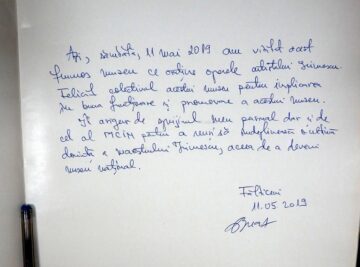 Azi, sâmbătă, 11 mai 2019 am vizitat acest
frumos muzeu ce conține operele artistului Irimescu.
Felicit colectivul acestui muzeu pentru implicarea
în buna funcționare și promovare a acestui muzeu.
Îi asigur de sprijinul meu personal dar și de
cel al MCIN pentru a reuși să îndeplinească ultima
dorință a maestrului Irimescu, aceea de a deveni
muzeu național.
Fălticeni
11.05.2019